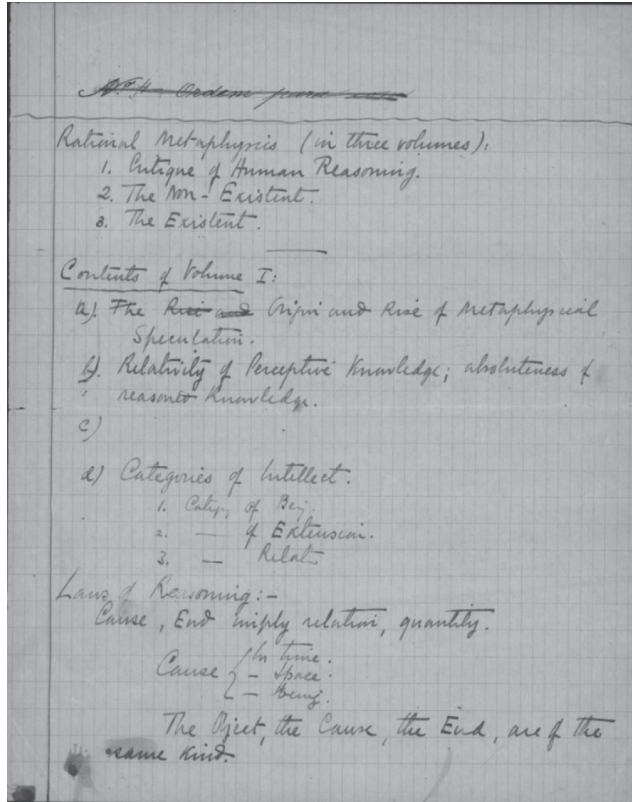 Ordem para
Rational Metaphysics (in three volumes):
1. Critique of Human Reasoning.
2. The Non-Existent.
3. The Existent.
Contents of Volume I:
a). The Rise and Origin and Rise of Metaphysical
Speculation.
b). Relativity of Perceptive Knowledge; absoluteness of
reasoned Knowledge.
c)
d) Categories of Intellect.
1. Category of Being.
2. — of Extension.
3. — Relat
Laws of Reasoning:-
Cause, End imply relation, quantity.
Cause { In time.
— Space.
— Being.
The Object, the Cause, the End, are of the
same kind.